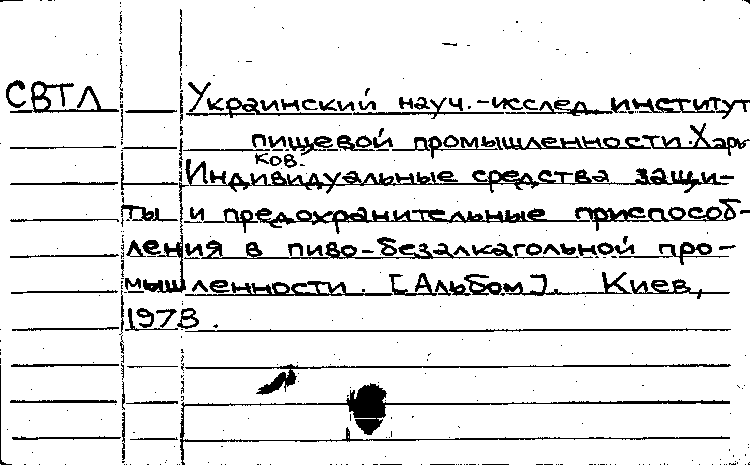 СВТЛ Украинский науч.-исслед. институт
пищевой промышленности. Харь
ков.
Индивидуальные средства защи-
ты и предохранительные приспособ-
ления в пиво-безалкагольной про-
мышленности. [Альбом]. Киев,
1978.